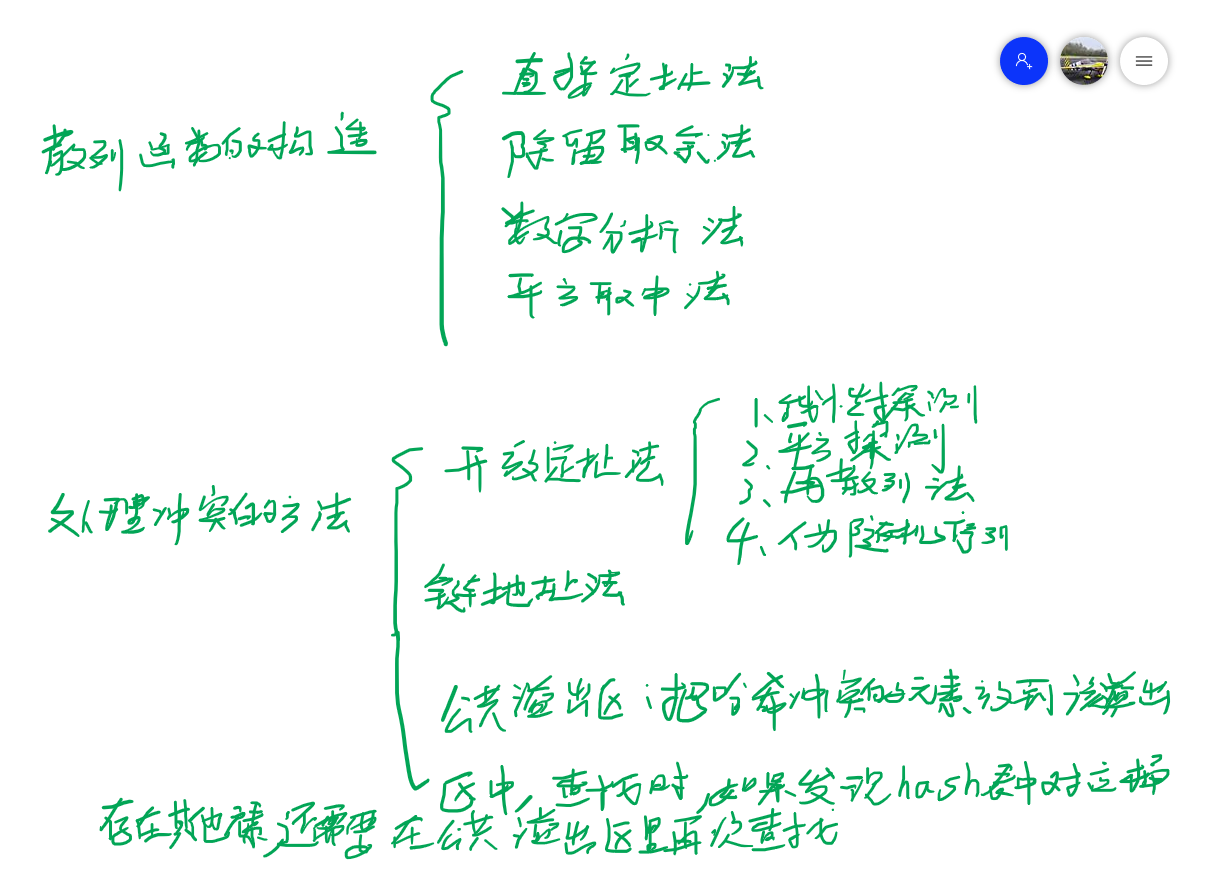 散列函数的构造
直接定址法
除留取余法
数字分析法
平方取中法
处理冲突的方法
开放定址法
1、线性探测
2、平方探测
3、再散列法
4、伪随机序列
链地址法
公共溢出区:把哈希冲突的元素放到该溢出
区中,查找时,如果发现hash表中对应
存在其他元素,还需要在公共溢出区里再次查找